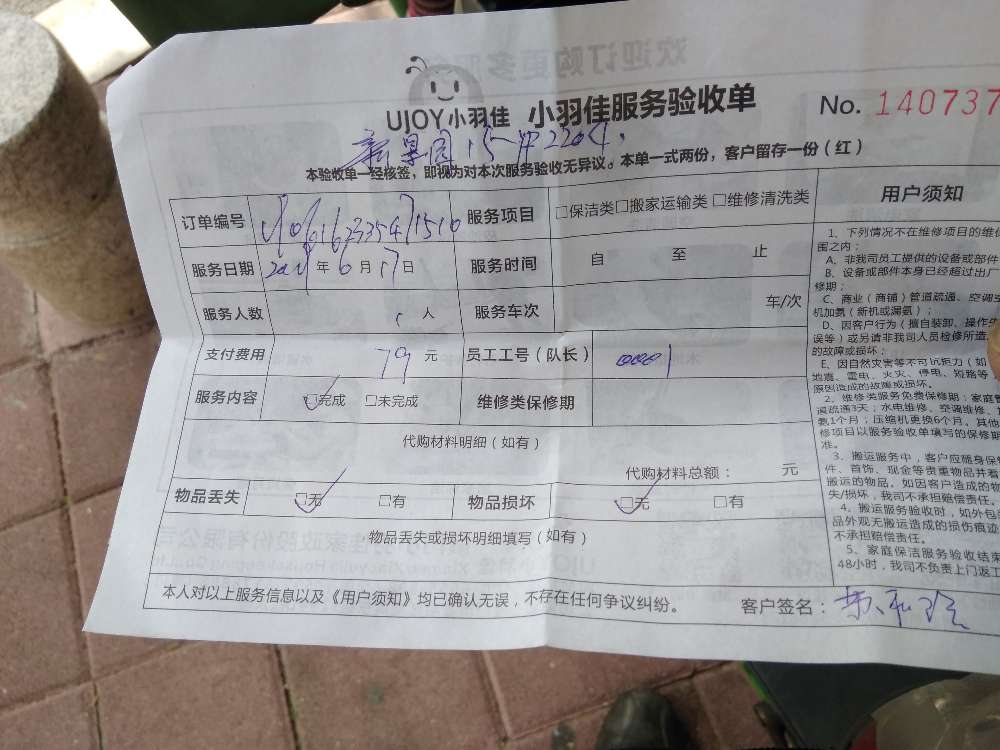 UJOY小羽佳 小羽佳服务验收单 No. 140737
15-
2204
本验收单一经核签，即视为对本次服务验收无异议。本单一式两份，客户留存一份（红）
订单编号 服务项目 □保洁类□搬家运输类 □维修清洗类
服务日期 年 6 月 17 日 服务时间 自 至 止
服务人数 人 服务车次 车/次
支付费用 79 元 员工工号（队长）
服务内容 □完成 □未完成 维修类保修期
代购材料明细（如有）
代购材料总额： 元
物品丢失 □无 □有 物品损坏 □无 □有
物品丢失或损坏明细填写（如有）
本人对以上服务信息以及《用户须知》均已确认无误，不存在任何争议纠纷。 客户签名：
用户须知
1、下列情况不在维修项目的维
围之内：
A、非我司员工提供的设备或部件
B、设备或部件本身已经超过出厂
修期；
C、商业（商铺）管道疏通、空调
机加氨（新机或漏氨）；
D、因客户行为（擅自装卸、操作
误等）或另请非我司人员检修所造
的故障或损坏；
E、因自然灾害等不可抗拒力（如
地震、雷电、火灾、停电、短路等
原因造成的故障或损坏。
2、维修类服务免费保修期：家庭
道疏通3天；水电维修、空调维修、
氨1个月；压缩机更换6个月。其他
修项目以服务验收单填写的保修期
准。
3、搬运服务中，客户应随身保
件、首饰、现金等贵重物品并看
搬运的物品。如因客户造成的物
失/损坏，我司不承担赔偿责任。
4、搬运服务验收时，如外包
品外观无搬运造成的损伤痕迹
不承担赔偿责任。
5、家庭保洁服务验收结束
48小时，我司不负责上门返工